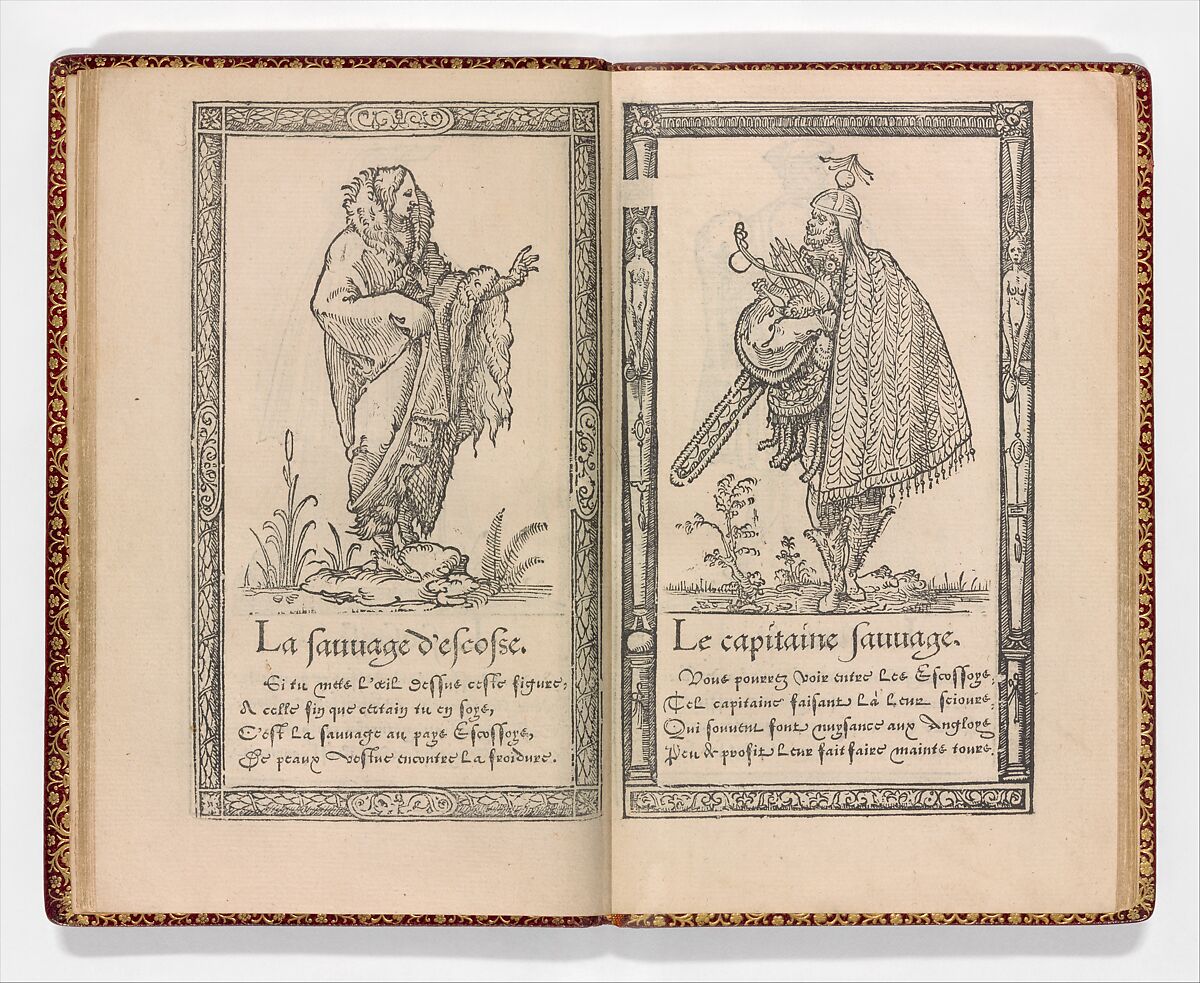 La sauuage d'escosse.
Si tu mets l'œil dessus ceste figure,
A celle fin que certain tu en soys,
C'est la sauuage au pays Escossoys,
De peaux vestue encontre la froidure.
Le capitaine sauuage.
Vous pourrez voir entre les Escossoys,
Tel capitaine faisant là leur seiours,
Qui souuent font nuysance aux Angloys
Peu de profit leur fait faire mainte tours.